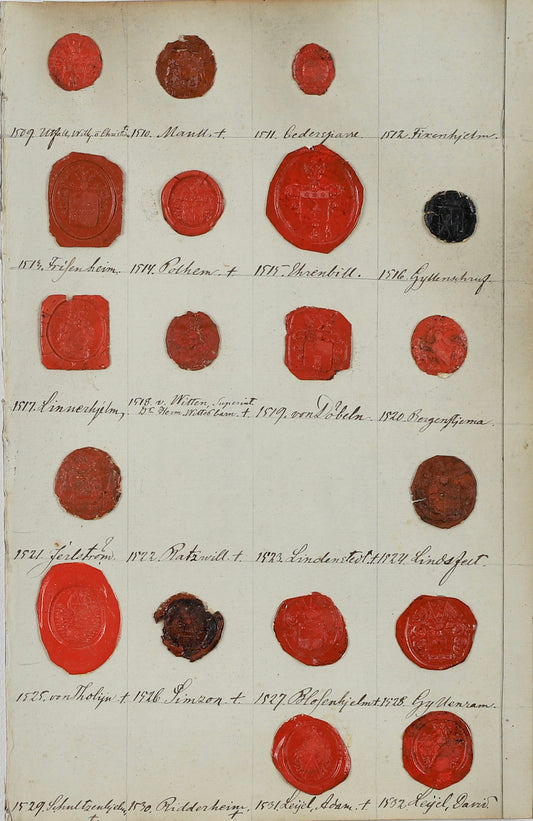 1509. Ulfall, Willh. o Christ. 1510. Manll. + 1511. Cederspарre. 1512. Fixenhjelm.
1513. Frisenheim. 1514. Polhem. + 1515. Ehrenbill. 1516. Gyllenschruf.
1517. Linnerhjelm, 1518. v. Witten, Superint. 1519. von Döbeln. 1520. Bergenstjerna.
Dr. Herm. Wittes barn. +
1521. Ferlström. 1522. Ratzwill. + 1523. Lindenstedt. + 1524. Lindsfelt.
1525. von Tholijn + 1526. Simzon. + 1527. Blosenhjelm + 1528. Gyllenram.
1529. Schultzenhjelm + 1530. Ridderheim + 1531. Leijel, Adam. + 1532. Leijel, David